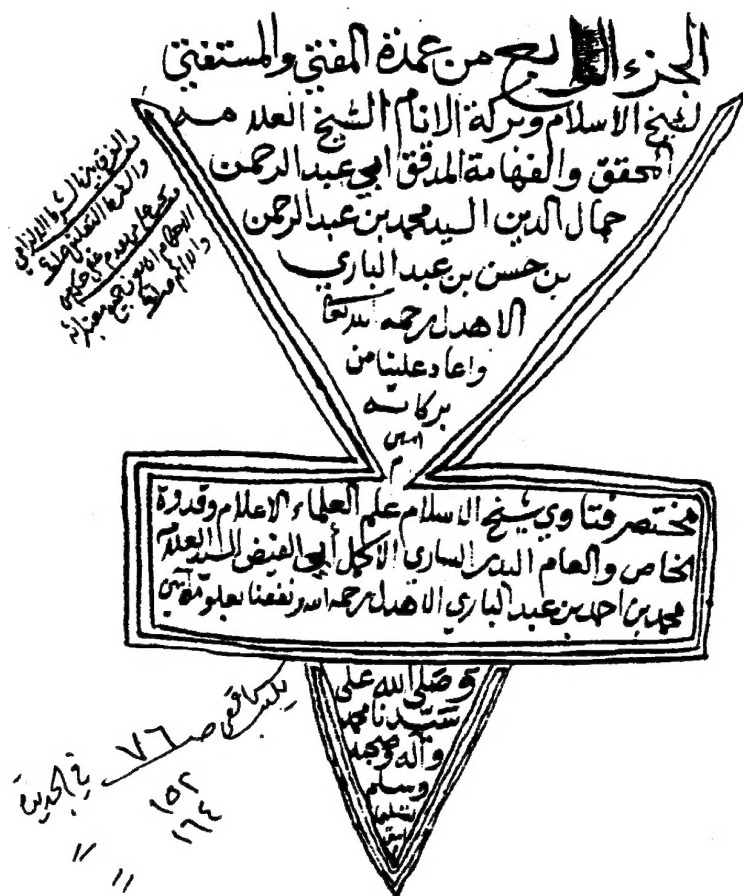 الجزء الرابع من عمدة المفتي والمستفتي
لشيخ الاسلام وبركة الانام الشيخ العلامه
المحقق والفهامة المدقق ابي عبد الرحمن
جمال الدين السيد محمد بن عبد الرحمن
بن حسن بن عبد الباري
الاهدل رحمه الله تعا
واعاد علينا من
بركاته
امين
م
مختصر فتاوي شيخ الاسلام علم العلماء الاعلام وقدوة
الخاص والعام البدر الساري الاكمل أبي الفيض السيد العلامه
محمد بن احمد بن عبد الباري الاهدل رحمه الله ونفعنا بعلومه آمين
وصلى الله على
سيدنا محمد
وآله وصحبه
وسلم
تسليما
ص ٧٦
١٥٢
١٦٤
١١
١١